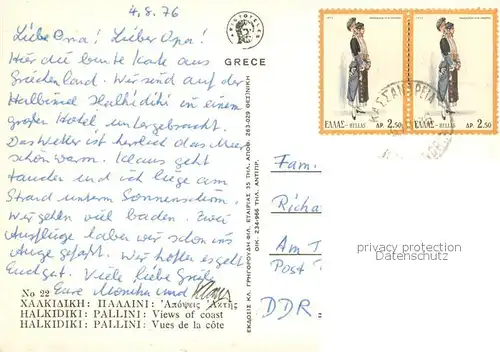 4.8.76
Liebe Oma! Lieber Opa!
Hier die bunte Karte aus
Griechenland. Wir sind auf der
Halbinsel Halkidiki in einem
großen Hotel untergebracht.
Das Wetter ist herrlich das Meer
schön warm. Klaus geht
tauchen und ich liege am
Strand unterm Sonnenschirm.
Wir gehen viel baden. Zwei
Ausflüge haben wir schon ins
Auge gefaßt. Wir hoffen es geht
Euch gut. Viele liebe Grüße
Eure Monika und Klaus
No 22
ΧΑΛΚΙΔΙΚΗ: ΠΑΛΛΙΝΙ: Ἀπόψεις Ἀκτῆς
HALKIDIKI: PALLINI: Views of coast
HALKIDIKI: PALLINI: Vues de la côte
GREECE
ΕΚΔΟΣΙΣ ΚΛ. ΓΡΗΓΟΡΟΥΔΗ ΦΙΛ. ΕΤΑΙΡΙΑΣ 35 ΤΗΛ. ΑΠΟΘ. 263-029 ΘΕΣ)ΝΙΚΗ
ΟΙΚ. 234-966 ΤΗΛ. ΑΝΤΙΠΡ.
ΕΛΛΑΣ-HELLAS ΔΡ. 2.50
ΕΛΛΑΣ-HELLAS ΔΡ. 2.50
ΚΑΣΣΑΝΔΡΕΙΑ
Fam.
Richa
Am T
Post
DDR
privacy protection
watermark